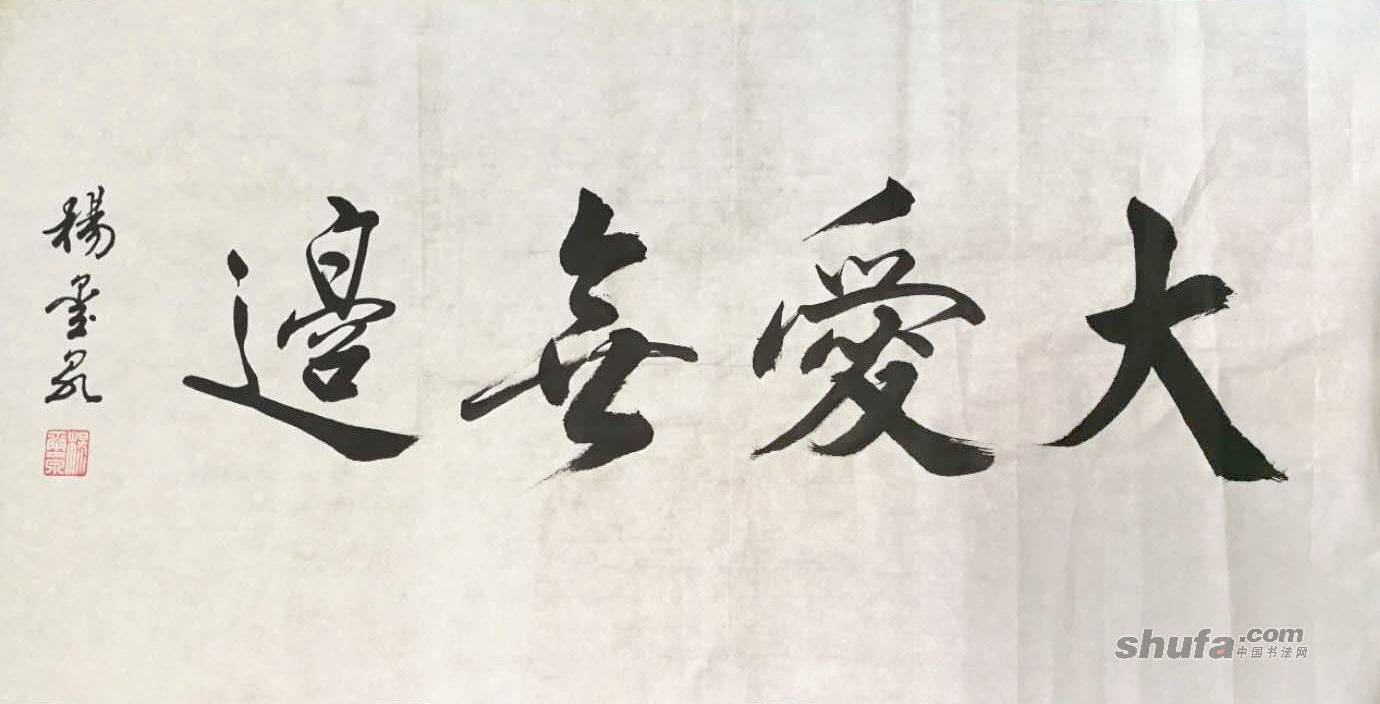 大愛無邊
楊墨泉
shufa.com
中国书法网